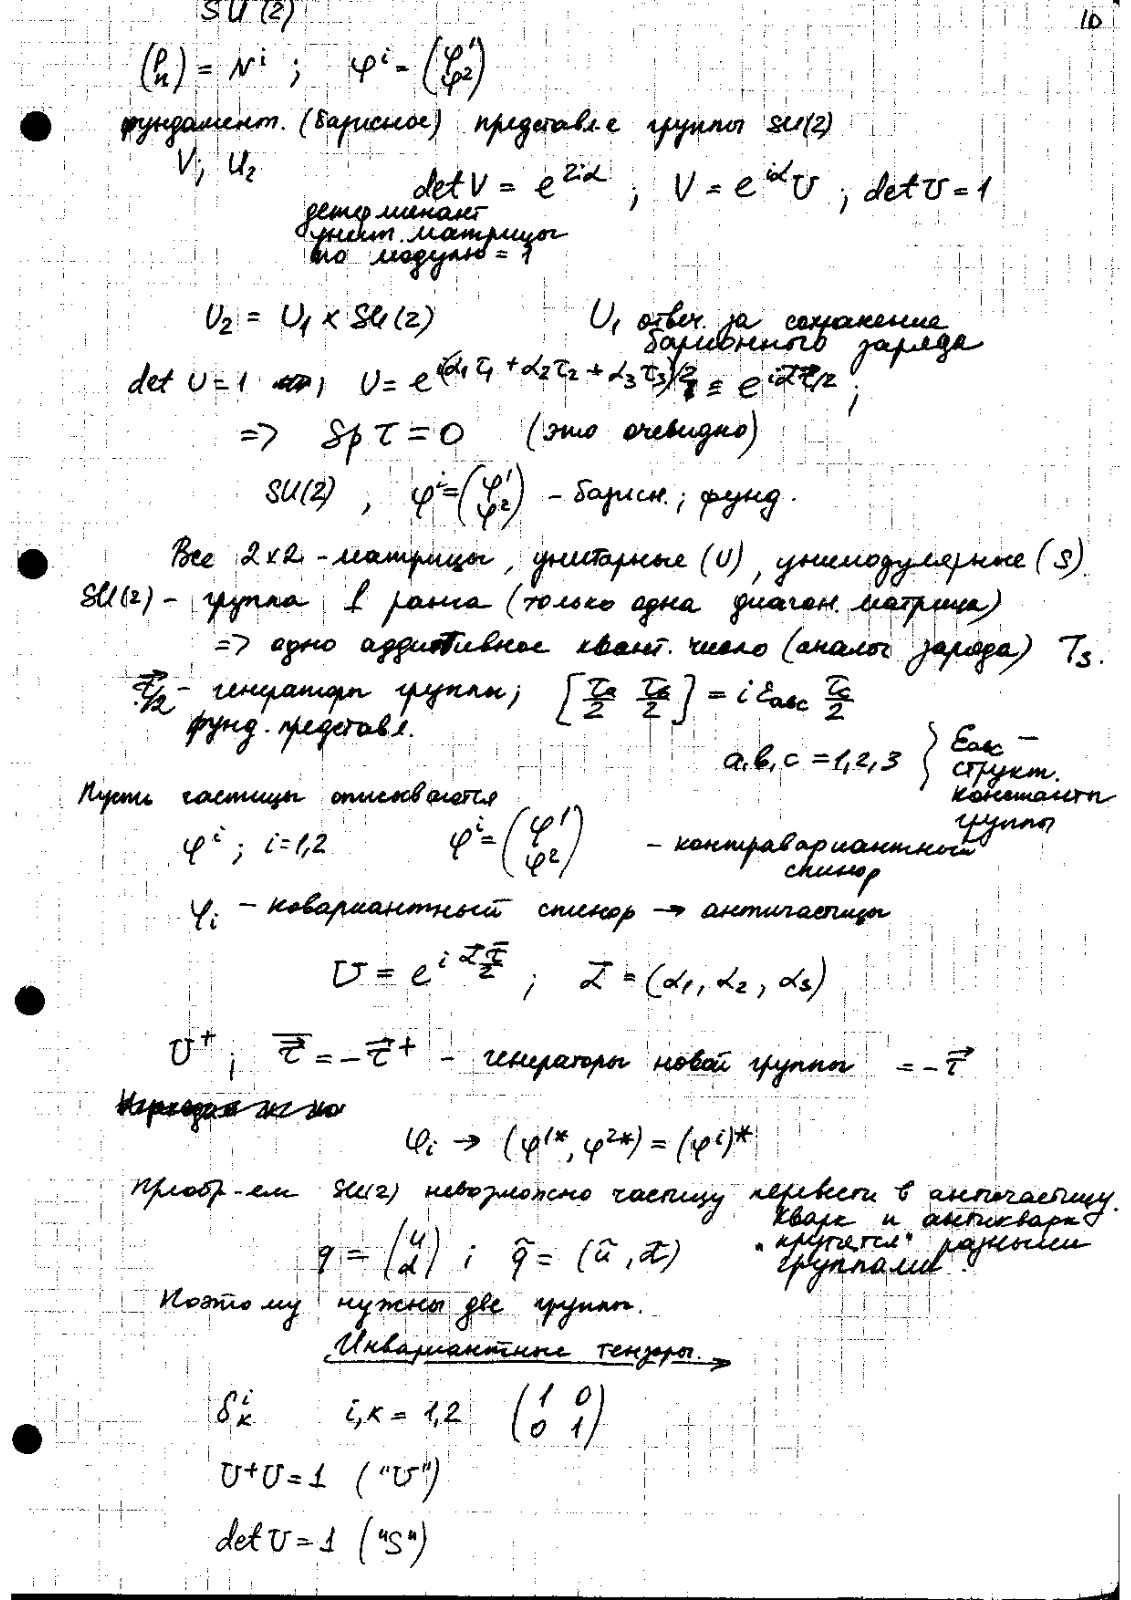 SU(2)
10
(p n) = Nⁱ ; φⁱ = (φ¹ φ²)
фундамент. (базисное) представл-е группы SU(2)
V; U₂
det V = e^{2iα} ; V = e^{iα} U ; det U = 1
детерминант
унит. матрицы
по модулю = 1
U₂ = U₁ × SU(2)
U₁ отвеч. за сохранение
барионного заряда
det U = 1 ; U = e^{i(α₁τ₁ + α₂τ₂ + α₃τ₃)/2} ≡ e^{iα⃗τ⃗/2} ;
=> Sp τ = 0 (это очевидно)
SU(2) , φⁱ = (φ¹ φ²) – базисн. ; фунд.
Все 2×2 – матрицы, унитарные (U), унимодулярные (S)
SU(2) – группа 1 ранга (только одна диагон. матрица)
=> одно аддитивное квант. число (аналог заряда) T₃.
τ⃗/2 – генераторы группы; [τₐ/2 τ_b/2] = i ε_abc τ_c/2
фунд. представл.
a, b, c = 1, 2, 3 } ε_abc –
структ.
константы
группы
Пусть частицы описываются
φⁱ ; i = 1,2 φⁱ = (φ¹ φ²) – контравариантный
спинор
φᵢ – ковариантный спинор → античастицы
U = e^{i α⃗τ⃗/2} ; α⃗ = (α₁, α₂, α₃)
U⁺ ; τ̄⃗ = –τ⃗⁺ – генераторы новой группы = –τ⃗
φᵢ → (φ¹*, φ²*) = (φⁱ)*
Преобр-ем SU(2) невозможно частицу перевести в античастицу.
Кварк и антикварк
"крутятся" разными
группами.
q = (u d) ; q̄ = (ū, d̄)
Поэтому нужны две группы.
Инвариантные тензоры.
δⁱₖ i, k = 1,2 (1 0 0 1)
U⁺U = 1 ("U")
det U = 1 ("S")